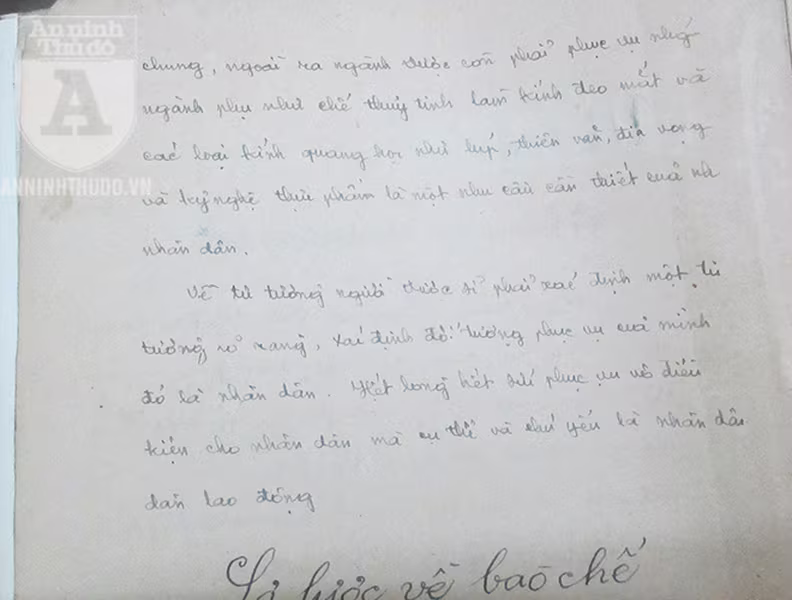 An ninh
Thủ đô
A
ANNINHTHUDO.VN
chung, ngoài ra ngành dược còn phải phục vụ nhữ
ngành phụ như chế thuỷ tinh làm kính đeo mắt và
các loại kính quang học như lúp, thiên văn, địa vọng
và kỹ nghệ thực phẩm là một nhu cầu cần thiết của nh
nhân dân.
Về tư tưởng người dược sĩ phải xác định một tư
tưởng rõ ràng, xác định đối tượng phục vụ của mình
đó là nhân dân. Hết lòng hết sức phục vụ vô điều
kiện cho nhân dân mà cụ thể và chủ yếu là nhân dân
dân lao động
Sơ lược về bào chế